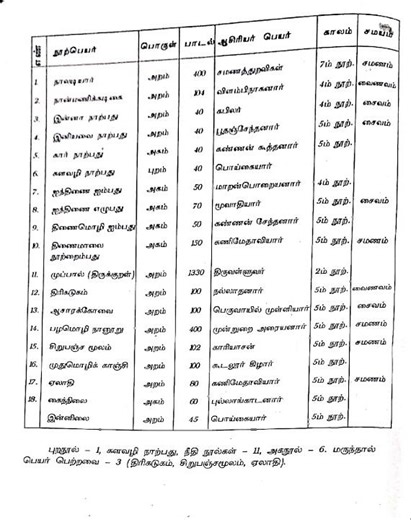 எண் நூற்பெயர் பொருள் பாடல் ஆசிரியர் பெயர் காலம் சமயம்
1. நாலடியார் அறம் 400 சமணத்துறவிகள் 7ம் நூற். சமணம்
2. நான்மணிக்கடிகை அறம் 104 விளம்பிநாகனார் 4ம் நூற். வைணவம்
3. இன்னா நாற்பது அறம் 40 கபிலர் 4ம் நூற். சைவம்
4. இனியவை நாற்பது அறம் 40 பூதஞ்சேந்தனார் 5ம் நூற். சைவம்
5. கார் நாற்பது அகம் 40 கண்ணன் கூத்தனார் 5ம் நூற்.
6. களவழி நாற்பது புறம் 40 பொய்கையார்
7. ஐந்திணை ஐம்பது அகம் 50 மாறன்பொறையனார் 4ம் நூற்.
8. ஐந்திணை எழுபது அகம் 70 மூவாதியார் 5ம் நூற். சைவம்
9. திணைமொழி ஐம்பது அகம் 50 கண்ணன் சேந்தனார் 5ம் நூற்.
10. திணைமாலை அகம் 150 கணிமேதாவியார் 5ம் நூற். சமணம்
நூற்றைம்பது
11. முப்பால் (திருக்குறள்) அறம் 1330 திருவள்ளுவர் 2ம் நூற்.
12. திரிகடுகம் அறம் 100 நல்லாதனார் 5ம் நூற். வைணவம்
13. ஆசாரக்கோவை அறம் 100 பெருவாயில் முள்ளியார் 5ம் நூற். சைவம்
14. பழமொழி நானூறு அறம் 400 மூன்றுறை அரையனார் 5ம் நூற். சமணம்
15. சிறுபஞ்ச மூலம் அறம் 102 காரியாசன் 5ம் நூற். சமணம்
16. முதுமொழிக் காஞ்சி அறம் 100 கூடலூர் கிழார் 5ம் நூற்.
17. ஏலாதி அறம் 80 கணிமேதாவியார் 5ம் நூற். சமணம்
18. கைந்நிலை அகம் 60 புல்லாங்காடனார் 5ம் நூற்.
இன்னிலை அறம் 45 பொய்கையார் 5ம் நூற்.
புறநூல் - 1, களவழி நாற்பது, நீதி நூல்கள் - 11, அகநூல் - 6. மருந்தால்
பெயர் பெற்றவை - 3 (திரிகடுகம், சிறுபஞ்சமூலம், ஏலாதி).